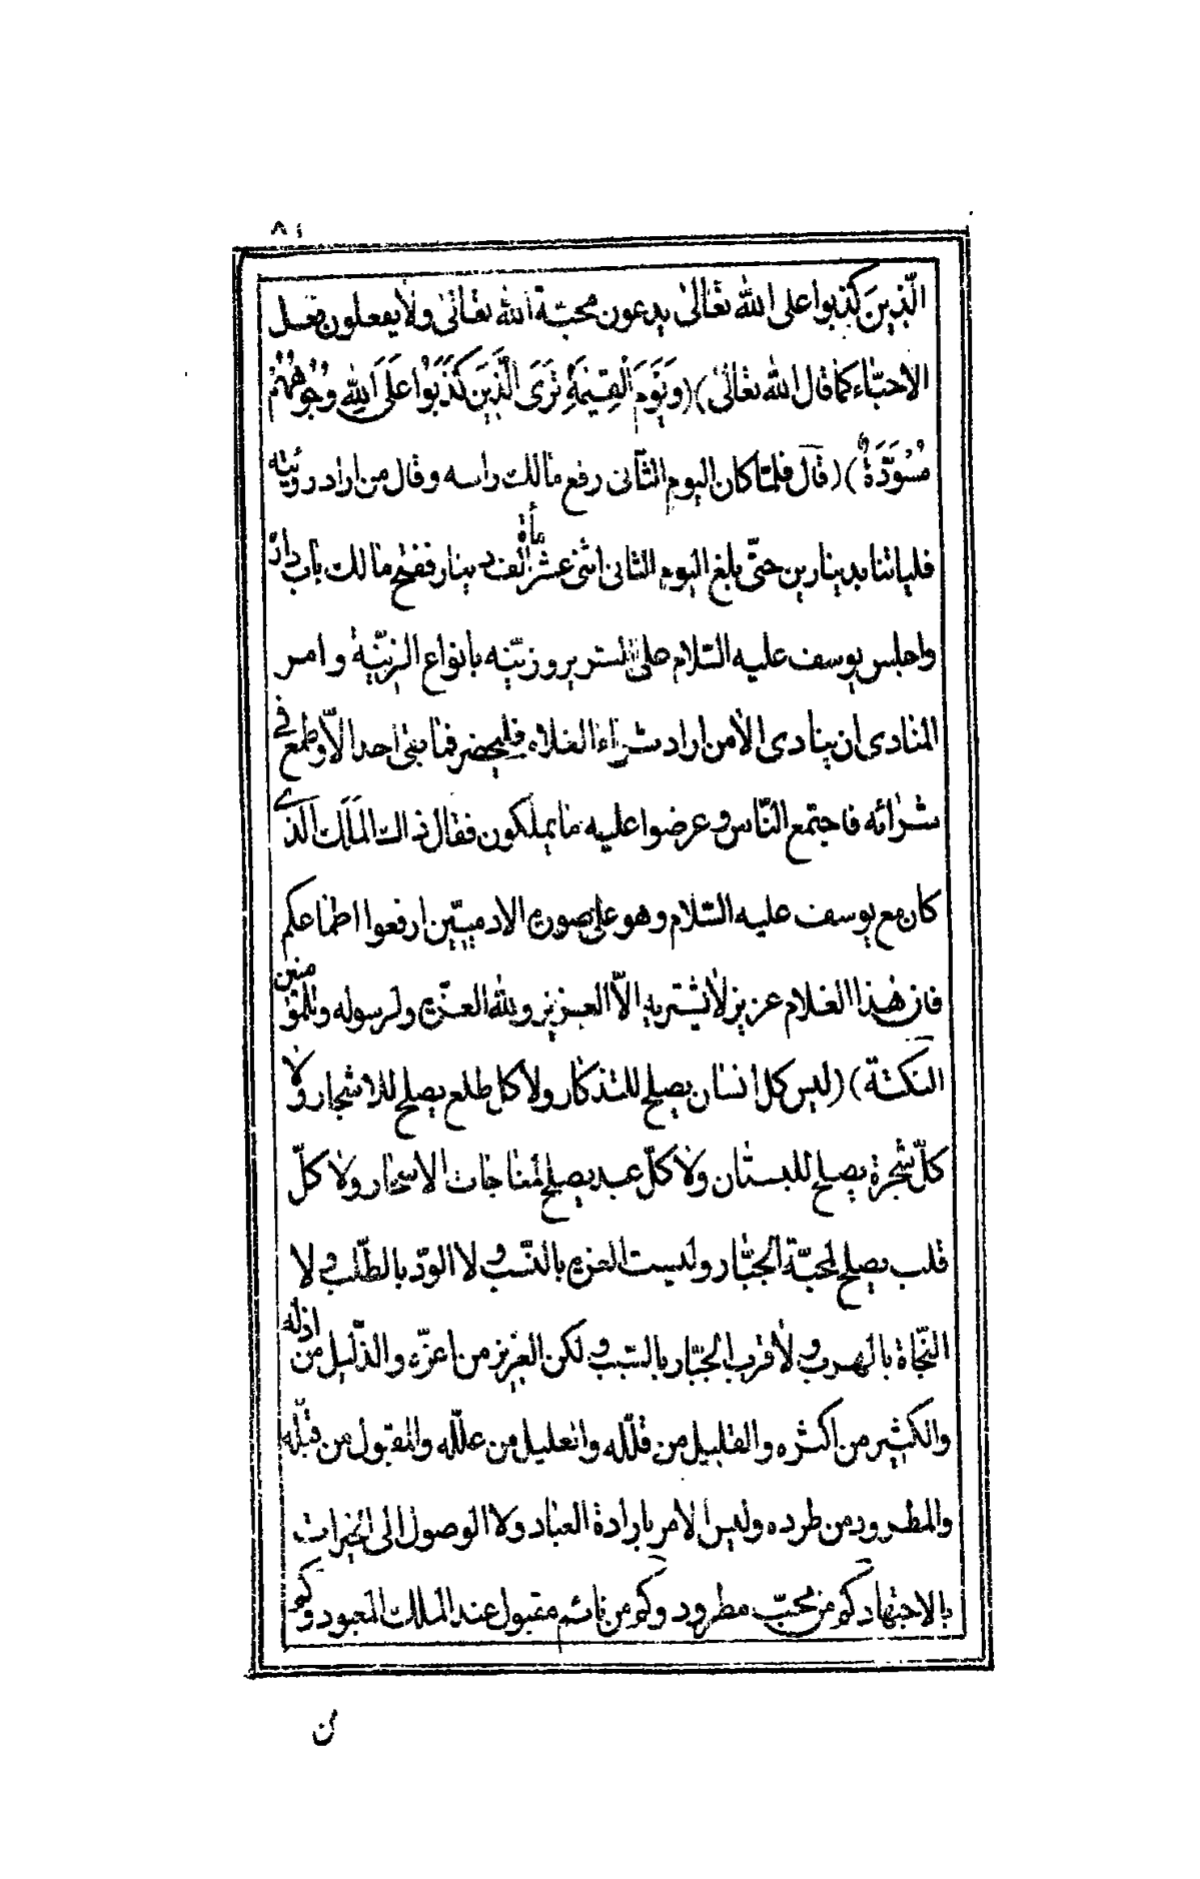 ٨١
الّذين كذبوا على الله تعالى يدعون محبّة الله تعالى ولا يفعلون فعل
الاحبّاء كما قال الله تعالى) (وَيَوْمَ الْقِيٰمَةِ تَرَى الَّذِينَ كَذَبُوا عَلَى اللهِ وُجُوهُهُمْ
مُسْوَدَّةٌ) (قال فلمّا كان اليوم الثّانى رفع مالك راسه وقال من اراد رويته
فلياتنا بدينارين حتّى بلغ اليوم الثانى اثنى عشر مأة الف دينار ففتح مالك باب داره
واجلس يوسف عليه السّلام على السرير وزيّنه بانواع الزينة وامر
المنادى ان ينادى الا من اراد شراء الغلام فليحضر فما بقى احد الاّ وطمع فى
شرائه فاجتمع النّاس وعرضوا عليه ما يملكون فقال ذالك المَلَك الّذى
كان مع يوسف عليه السّلام وهو على صورة الادميّين ارفعوا اطماعكم
فان هذا الغلام عزيز لا يشتريه الاّ العزيز ولله العزة ولرسوله وللمؤمنين
النكتة) (ليس كل انسان يصلح للتذكار ولا كل طلع يصلح للاشجار ولا
كلّ شجرة يصلح للبستان ولا كلّ عبد يصلح لمناجات الاسحار ولا كلّ
قلب يصلح لمحبّة الجبّار وليست العزة بالنّسب ولا الودّ بالطّلب ولا
النّجاة بالهرب ولا قرب الجبّار بالسّبب ولكن العزيز من اعزّه والذّليل من اذلّه
والكثير من اكثره والقليل من قلّله والعليل من علّله والمقبول من قبّله
والمطرود من طرده وليس الامر بارادة العباد ولا الوصول الى الخيرات
بالاجتهاد كم من محبّ مطرود وكم من نائم مقبول عند الملك المعبود وكم
من